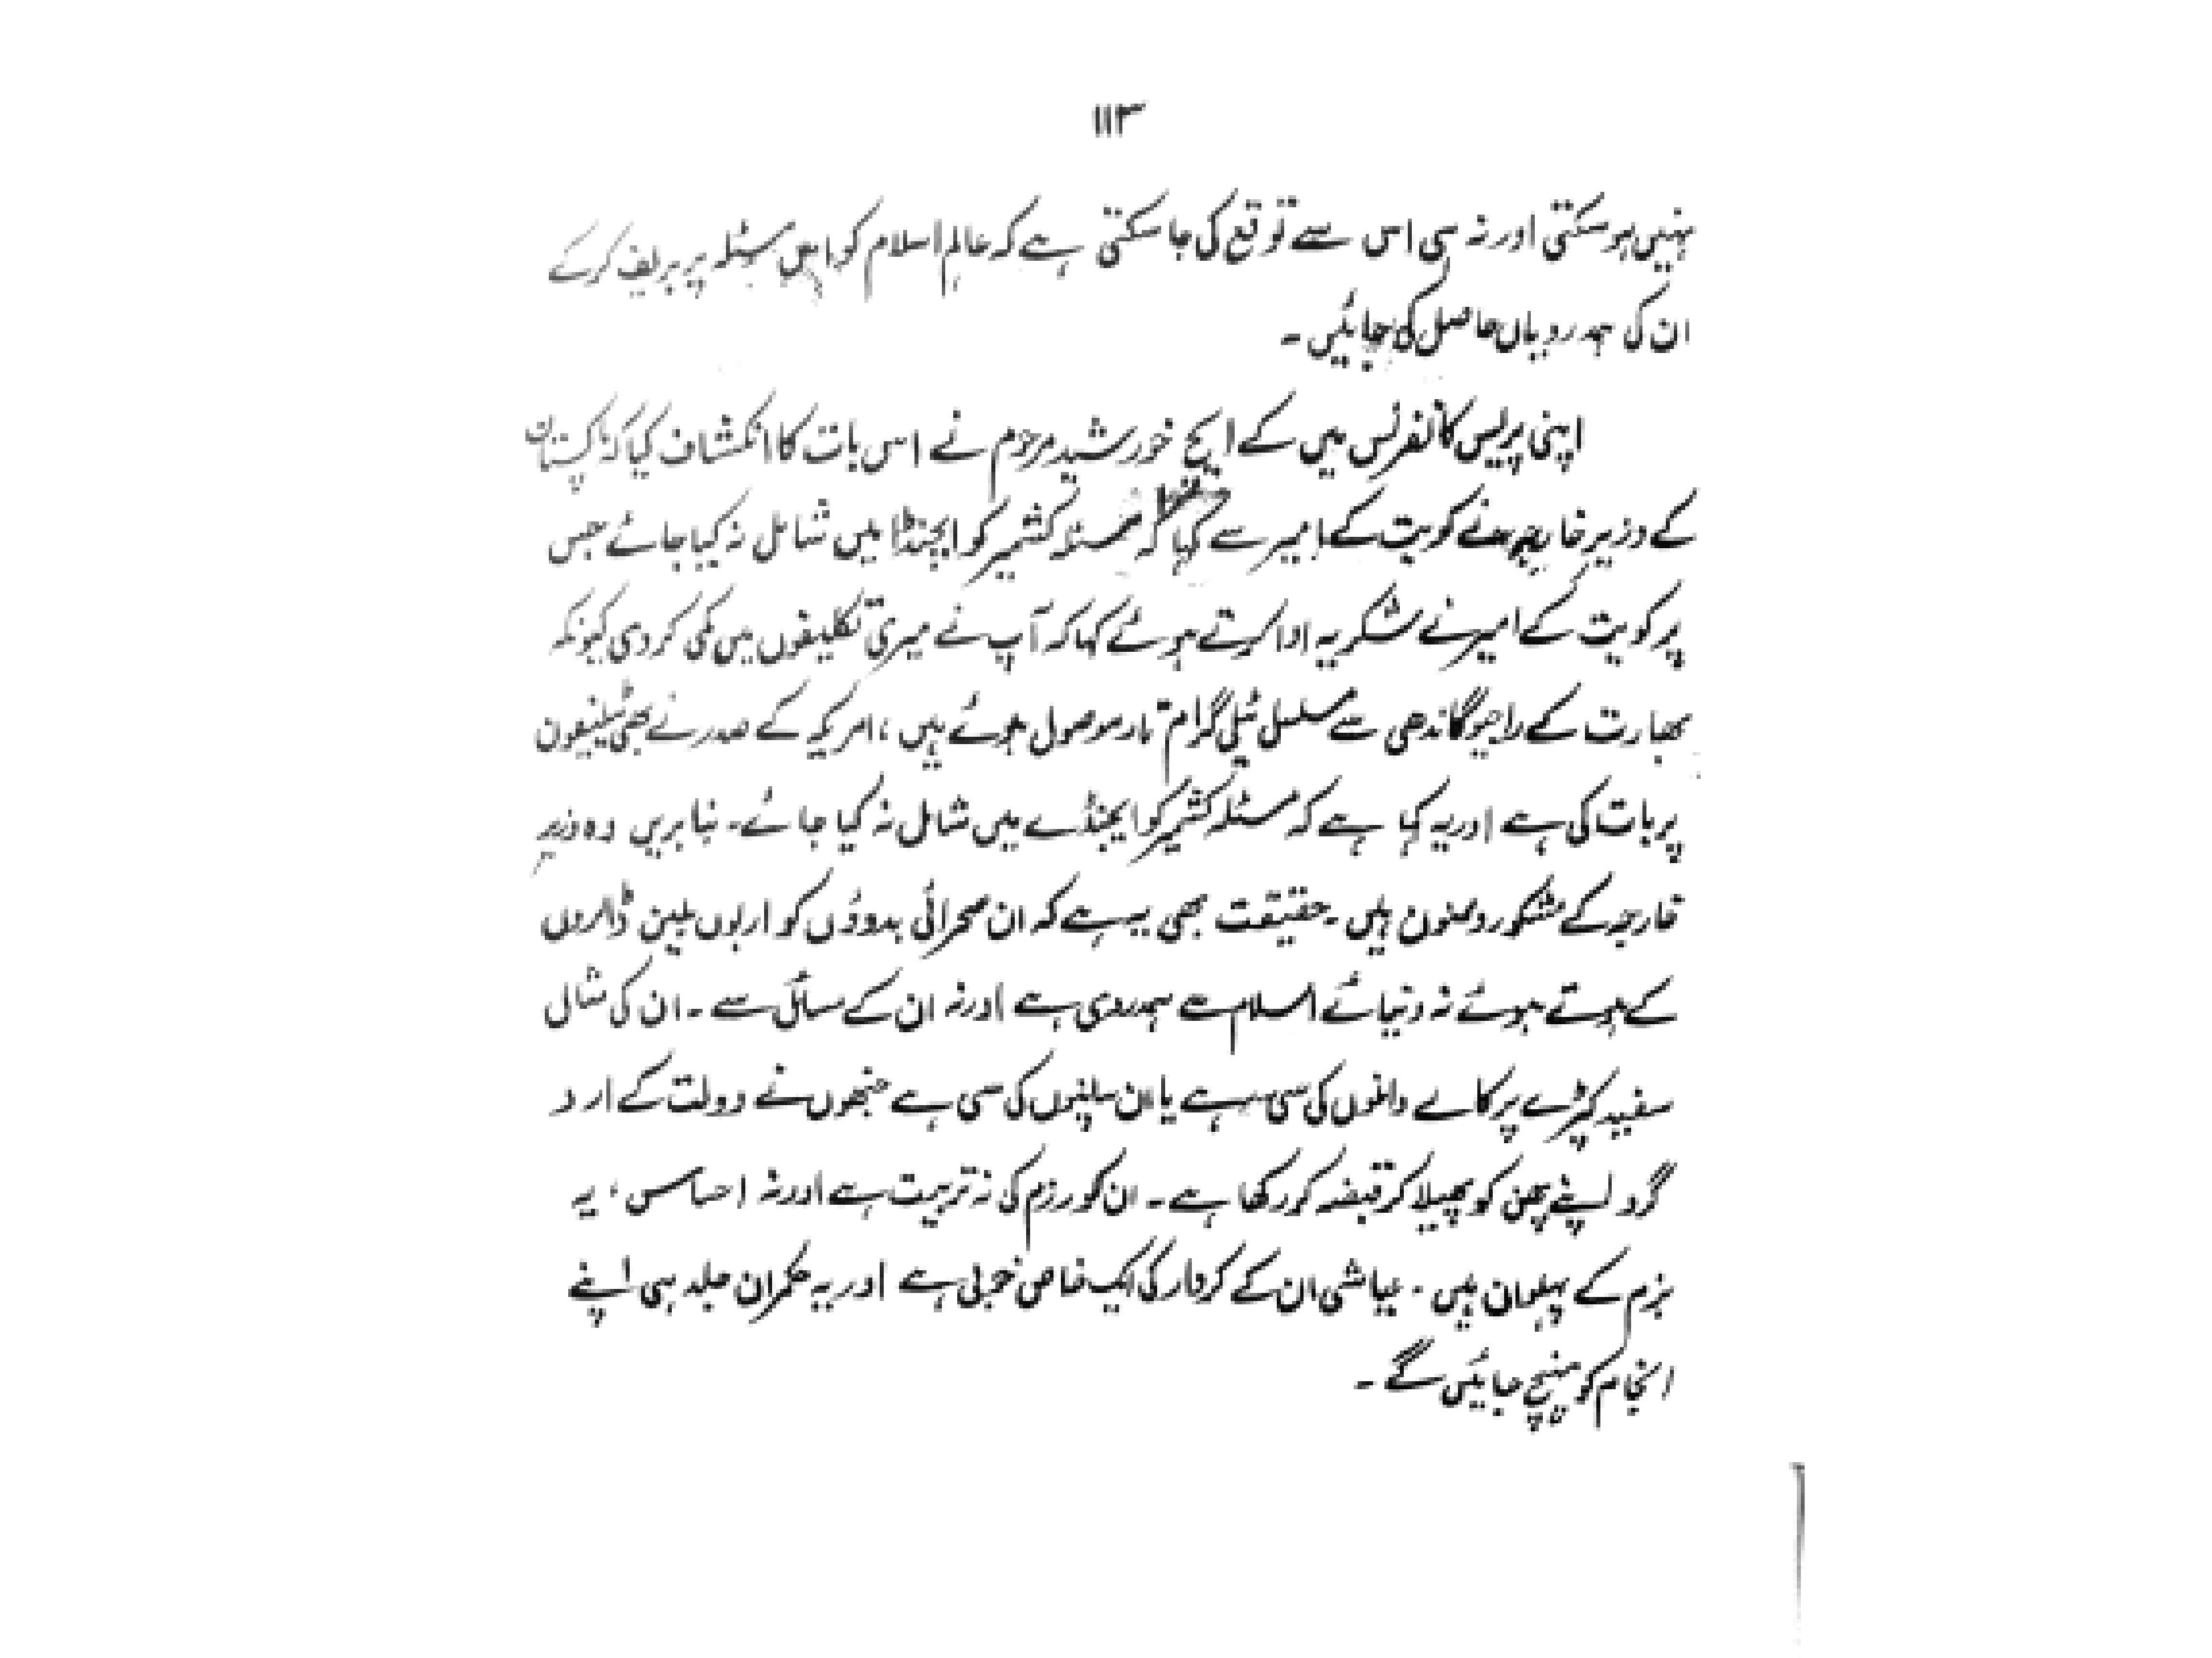 ۱۱۳
نہیں ہو سکتی اور نہ ہی اس سے توقع کی جا سکتی ہے کہ عالم اسلام کو اس مسئلہ پر بریف کرکے
ان کی ہمدردیاں حاصل کی جائیں ۔
اپنی پریس کانفرنس میں کے ایچ خورشید مرحوم نے اس بات کا انکشاف کیا کہ پاکستان
کے وزیر خارجہ نے کویت کے امیر سے کہا کہ مسئلہ کشمیر کو ایجنڈا میں شامل نہ کیا جائے جس
پر کویت کے امیر نے شکریہ ادا کرتے ہوئے کہا کہ آپ نے میری تکلیفوں میں کمی کر دی کیونکہ
بھارت کے راجیو گاندھی سے مسلسل ٹیلی گرام تار موصول ہوئے ہیں ، امریکہ کے صدر نے بھی ٹیلیفون
پر بات کی ہے اور یہ کہا ہے کہ مسئلہ کشمیر کو ایجنڈے میں شامل نہ کیا جائے ۔ بنا بریں وہ وزیر
خارجہ کے مشکور و ممنون ہیں ۔ حقیقت بھی یہ ہے کہ ان صحرائی بدوؤں کو اربوں بلین ڈالروں
کے ہوتے ہوئے نہ دنیائے اسلام سے ہمدردی ہے اور نہ ان کے مسائل سے ۔ ان کی مثالی
سفید کپڑے پر کالے داغوں کی سی ہے یا ان سانپوں کی سی ہے جنھوں نے دولت کے ارد
گرد اپنے پھن کو پھیلا کر قبضہ کر رکھا ہے ۔ ان کو رزم کی نہ تربیت ہے اور نہ احساس ، یہ
بزم کے پہلوان ہیں ۔ عیاشی ان کے کردار کی ایک خاص خوبی ہے اور یہ حکمران جلد ہی اپنے
انجام کو پہنچ جائیں گے ۔